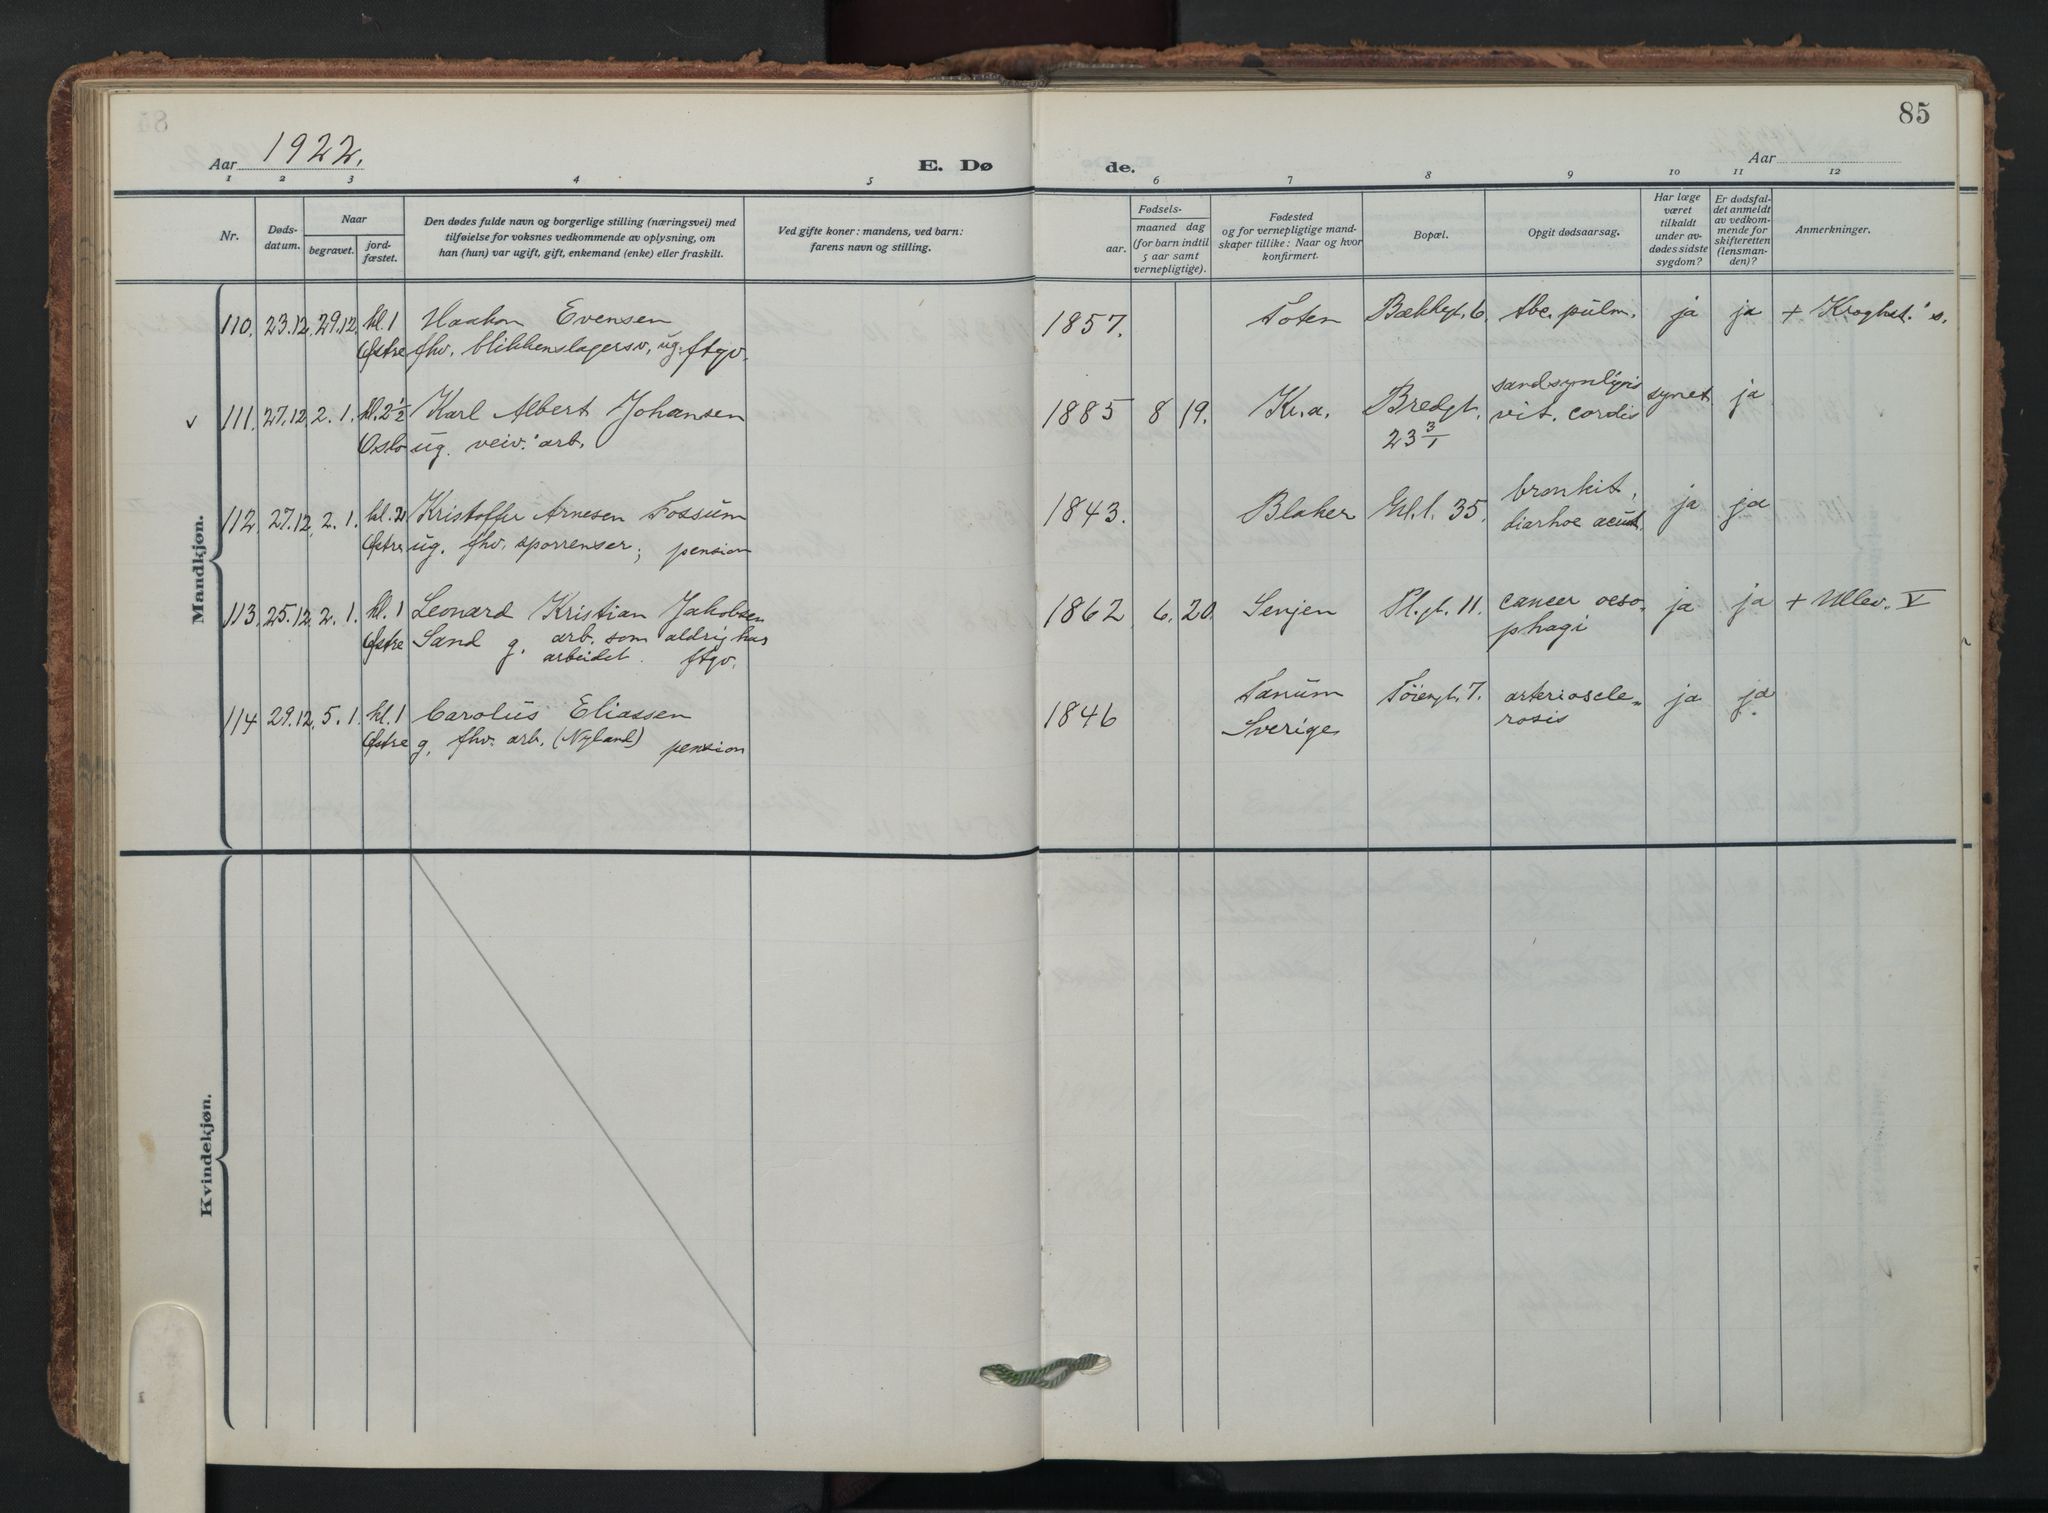 85
Aar 1922.
E. Dø
de.
Aar
1 2 3 4 5 6 7 8 9 10 11 12
Nr.
Døds-
datum.
Naar
begravet.
jord-
fæstet.
Den dødes fulde navn og borgerlige stilling (næringsvei) med
tilføielse for voksnes vedkommende av oplysning, om
han (hun) var ugift, gift, enkemand (enke) eller fraskilt.
Ved gifte koner: mandens, ved barn:
farens navn og stilling.
Fødsels-
aar.
maaned dag
(for barn indtil
5 aar samt
vernepligtige).
Fødested
og for vernepligtige mand-
skaper tillike: Naar og hvor
konfirmert.
Bopæl.
Opgit dødsaarsag.
Har læge
været
tilkaldt
under av-
dødes sidste
sygdom?
Er dødsfal-
det anmeldt
av vedkom-
mende for
skifteretten
(lensman-
den)?
Anmerkninger.
Mandkjøn.
110. 23.12. 29.12 kl. 1 Haakon Evensen 1857. Toten Bækkegt. 6. tbc. pulm. ja ja + Kroghst.'s.
Østre fhv. blikkenslagersv., ug. ftgv.
111. 27.12. 2.1. kl. 2 1/2 Karl Albert Johansen 1885 8 19. Kr.a. Bredgt. sandsynligvis synet ja
Oslo ug. veiv. arb. 23 3/1 vit. cordis
112. 27.12. 2.1. kl. 2 Kristoffer Arnesen Fossum 1843. Blaker Grl. l. 35. bronkit, ja ja
Østre ug. fhv. sporrenser; pension diarhoe acut.
113. 25.12. 2.1. kl. 1 Leonard Kristian Jakobsen 1862 6. 20. Senjen Pl.gt. 11. cancer oeso- ja ja + Ullev. V
Østre Sand g. arb. som aldrig har phagi
arbeidet. ftgv.
114 29.12. 5.1. kl. 1 Carolus Eliassen 1846 Tanum Tøiengt. 7. arterioscle- ja ja
Østre g. fhv. arb. (Nyland) pension Sverige rosis
Kvindekjøn.